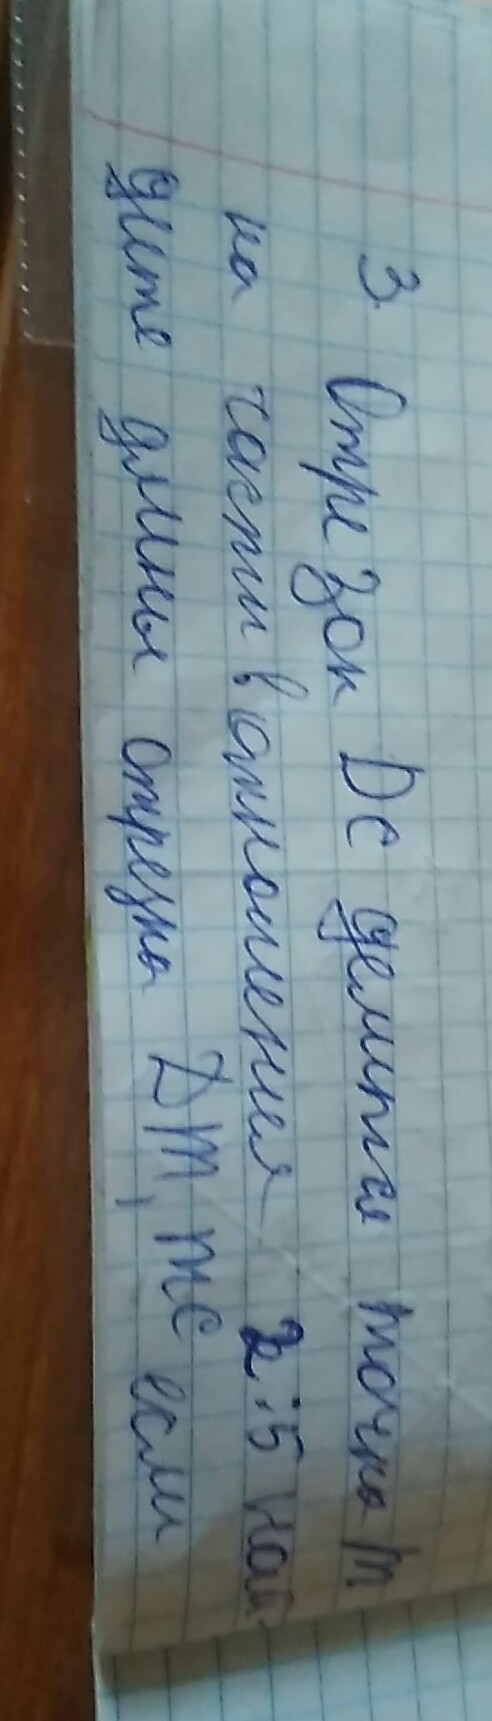 3. Отрезок DC делится точка m
на части в отношения 2:5 най
дите длины отрезка Dm, mC если